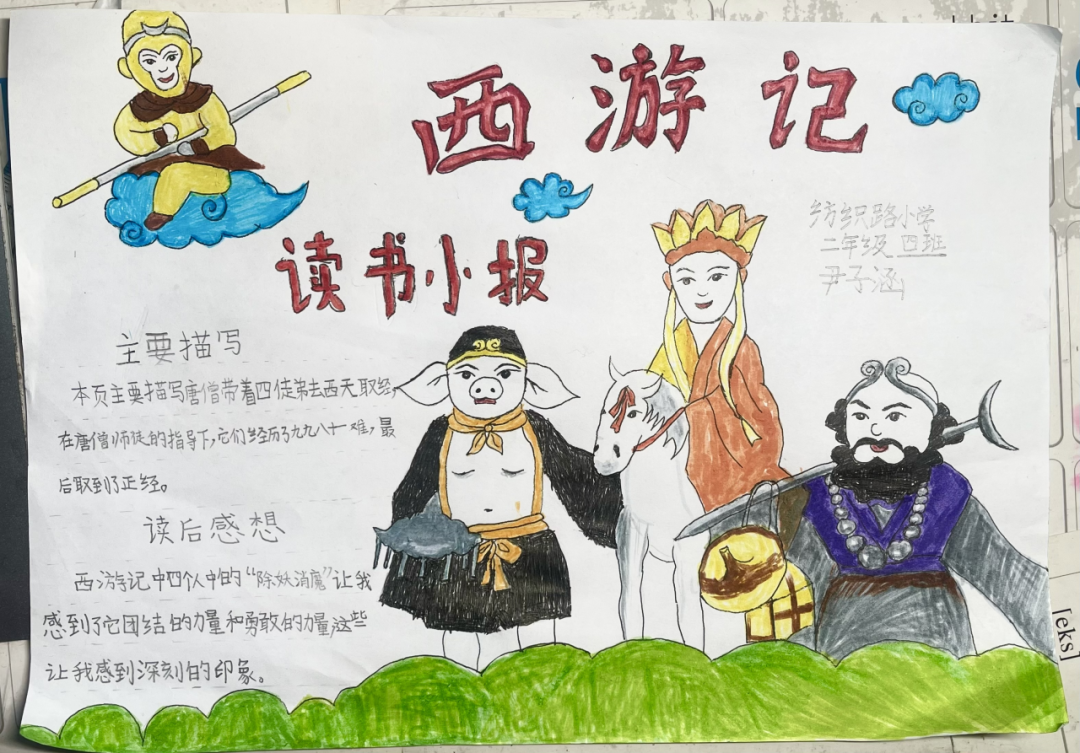 西游记
读书小报
纺织路小学
二年级四班
尹子涵
主要描写
本页主要描写唐僧带着四徒弟去西天取经,
在唐僧师徒的指导下,它们经历了九九八十难,最
后取到了正经。
读后感想
西游记中四个人中的“除妖消魔”让我
感到了它团结的力量和勇敢的力量,这些
让我感到深刻的印象。
[eks]